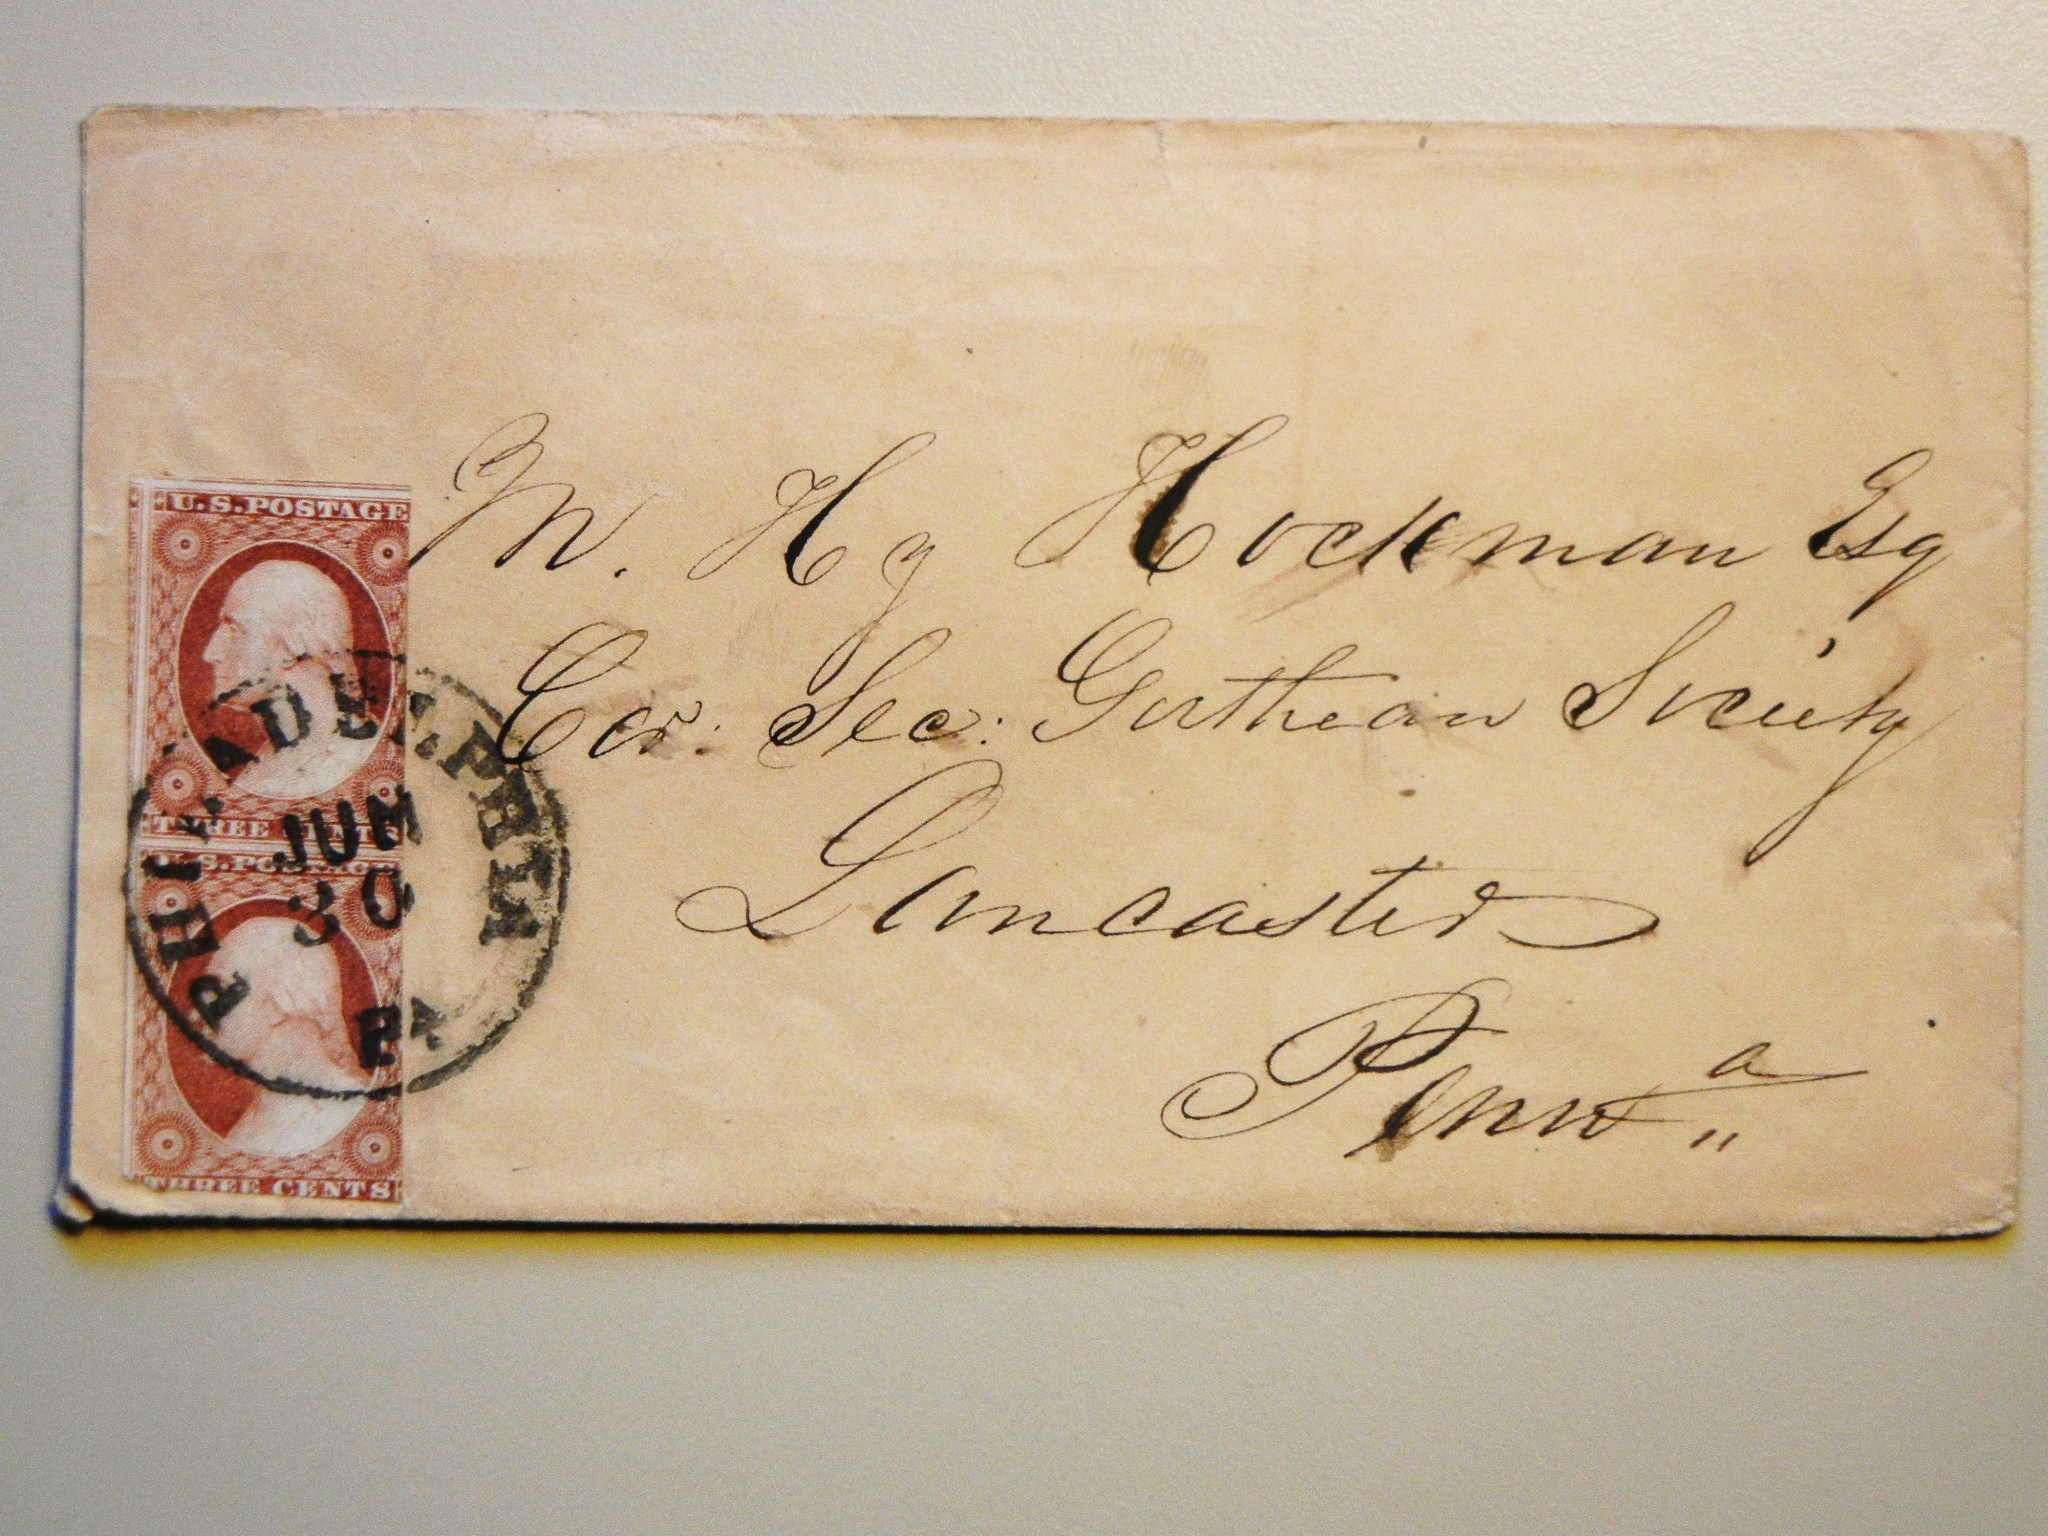 U.S.POSTAGE
THREE CENTS
U.S.POSTAGE
THREE CENTS
PHILADELPHIA
JUN
30
Pa
M. Hy Hockman Esq
Cor. Sec: Goethean Society
Lancaster
Penna